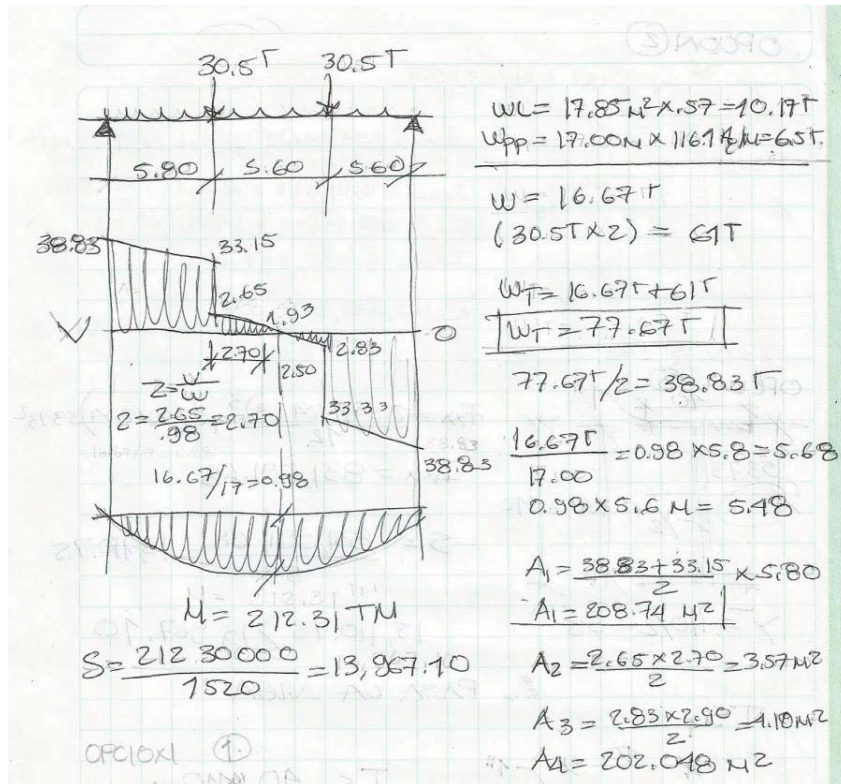 30.5T 30.5T
5.80 5.60 5.60
38.83 33.15
2.65
1.93
V 0
2.70 2.83
2.50
Z=V/W
Z=2.65/.98=2.70
33.33
38.83
16.67/17=0.98
M= 212.31 TM
S=21230000/1520=13,967.10
OPCION 1
WL= 17.85 M² x .57=10.17T
Wpp=17.00M x 116.7 kg/M=6.5T.
W= 16.67T
(30.5T x 2) = 61T
WT= 16.67T+61T
WT=77.67T
77.67T/2= 38.83T
16.67T/17.00=0.98 x5.8=5.68
0.98x5.6 M= 5.48
A1=38.83+33.15/2 x5.80
A1=208.74 M²
A2=2.65x2.70/2=3.57M²
A3=2.83x2.90/2=4.10M²
A4=202.048 M²